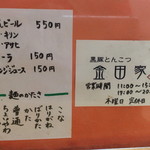 ビール 550円
キリン
アサヒ
ーラ 150円
ンジジュース 150円
麺のかたさ
こな
はりがね
ばりかた
かため
普通
やわ
黒豚とんこつ
金田家
営業時間 11:00~15:
17:00~20:
木曜日 定休日